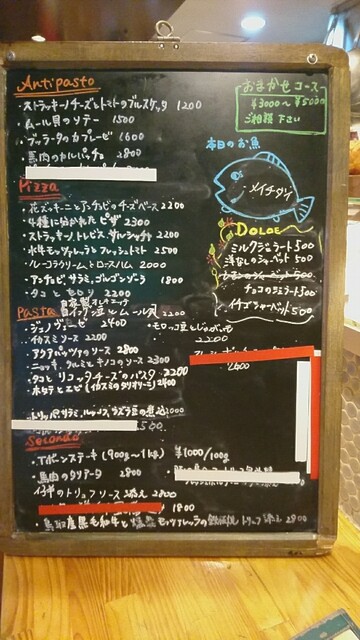 Antipasto
・ストラッキーノチーズとトマトのブルスケッタ 1200
・ムール貝のソテー 1500
・ブッラータのカプレーゼ 1600
・馬肉のカルパッチョ 2800
おまかせコース
¥3000〜¥5000
ご相談下さい
本日のお魚
メイチダイ
Pizza
・花ズッキーニとアンチョビのチーズベース 2200
・4種に分かれたピザ 2300
・ストラッキーノ、トレビス、サルシッチャ 2200
・水牛モッツァレラとフレッシュトマト 2500
・ルーコラクリームとロースハム 2000
・アンチョビ、サラミ、ゴルゴンゾーラ 1800
2200
Dolce
ミルクジェラート 500
洋なしシャーベット 500
チョコのジェラート 500
イチゴシャーベット 500
Pasta
白インゲン豆とムール貝 2200
・ジェノヴェーゼ 2400
・イカスミソース 2200
・アクアパッツァのソース 2800
・ニョッキ、タルミとキノコのソース 2300
・タコとリコッタチーズのパスタ 2200
・ホタテとエビ(イカスミのタリオリーニ) 2400
2200
2600
Secondo
・Tボーンステーキ (900g〜1kg) ¥1000/100g
・馬肉のタリアータ 2800
仔羊のトリュフソース添え 2800
1800
・鳥取産黒毛和牛と燻製モッツァレラの トリュフ添え 2800